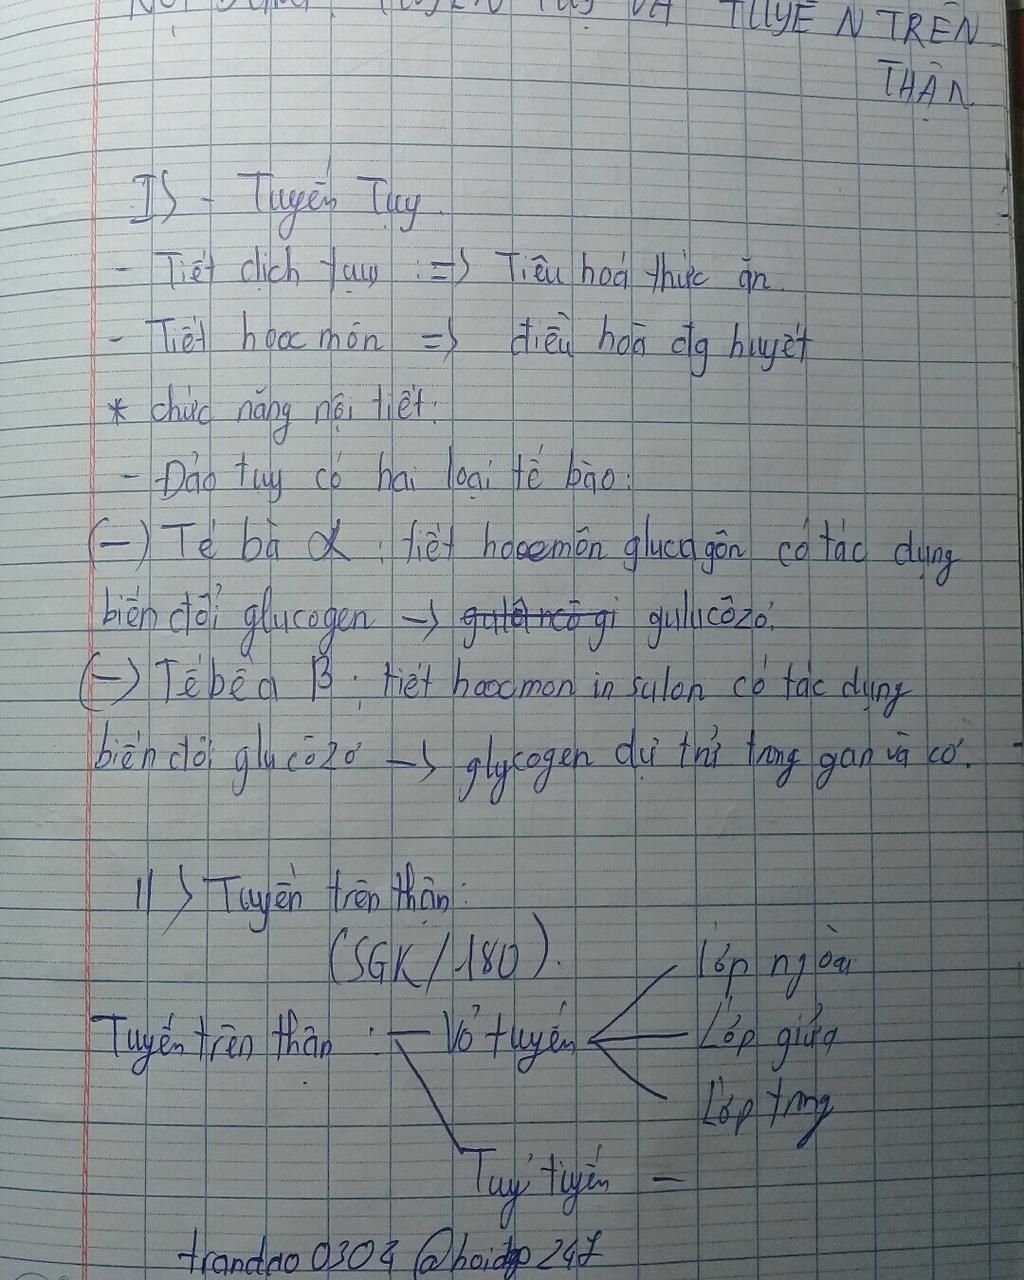 TUYẾN TRÊN
THẬN
I> - Tuyến Tụy.
- Tiết dịch tụy :=> Tiêu hoá thức ăn.
- Tiết hoocmôn => điều hoà đg huyết
* chức năng nội tiết:
- Đảo tụy có hai loại tế bào:
(-) Tế bà α : tiết hoocmôn glucagôn có tác dụng
biến đổi glucogen -> gulucôzơ.
(-) Tế bê a β : tiết hoocmon in sulon có tác dụng
biến đổi glucôzơ -> glycogen dự trữ trong gan và cơ.
II> Tuyến trên thận:
(SGK/180).
Lớp ngoài
Tuyến trên thận : - Vỏ tuyến Lớp giữa
Lớp trong
Tuỷ tuyến -
trandao0304@hoidap247